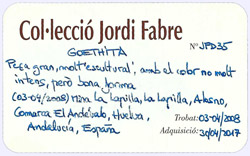 Col·lecció Jordi Fabre
GOETHITA
Nº JFD35
Peça gran, molt "escultural", amb el color no molt
intens, però bona forma
(03-04/2008) Mina La Lapilla, La Lapilla, Alosno,
Comarca El Andévalo, Huelva,
Andalucía, España
Trobat: 03-04/2008
Adquisició: 30/04/2017